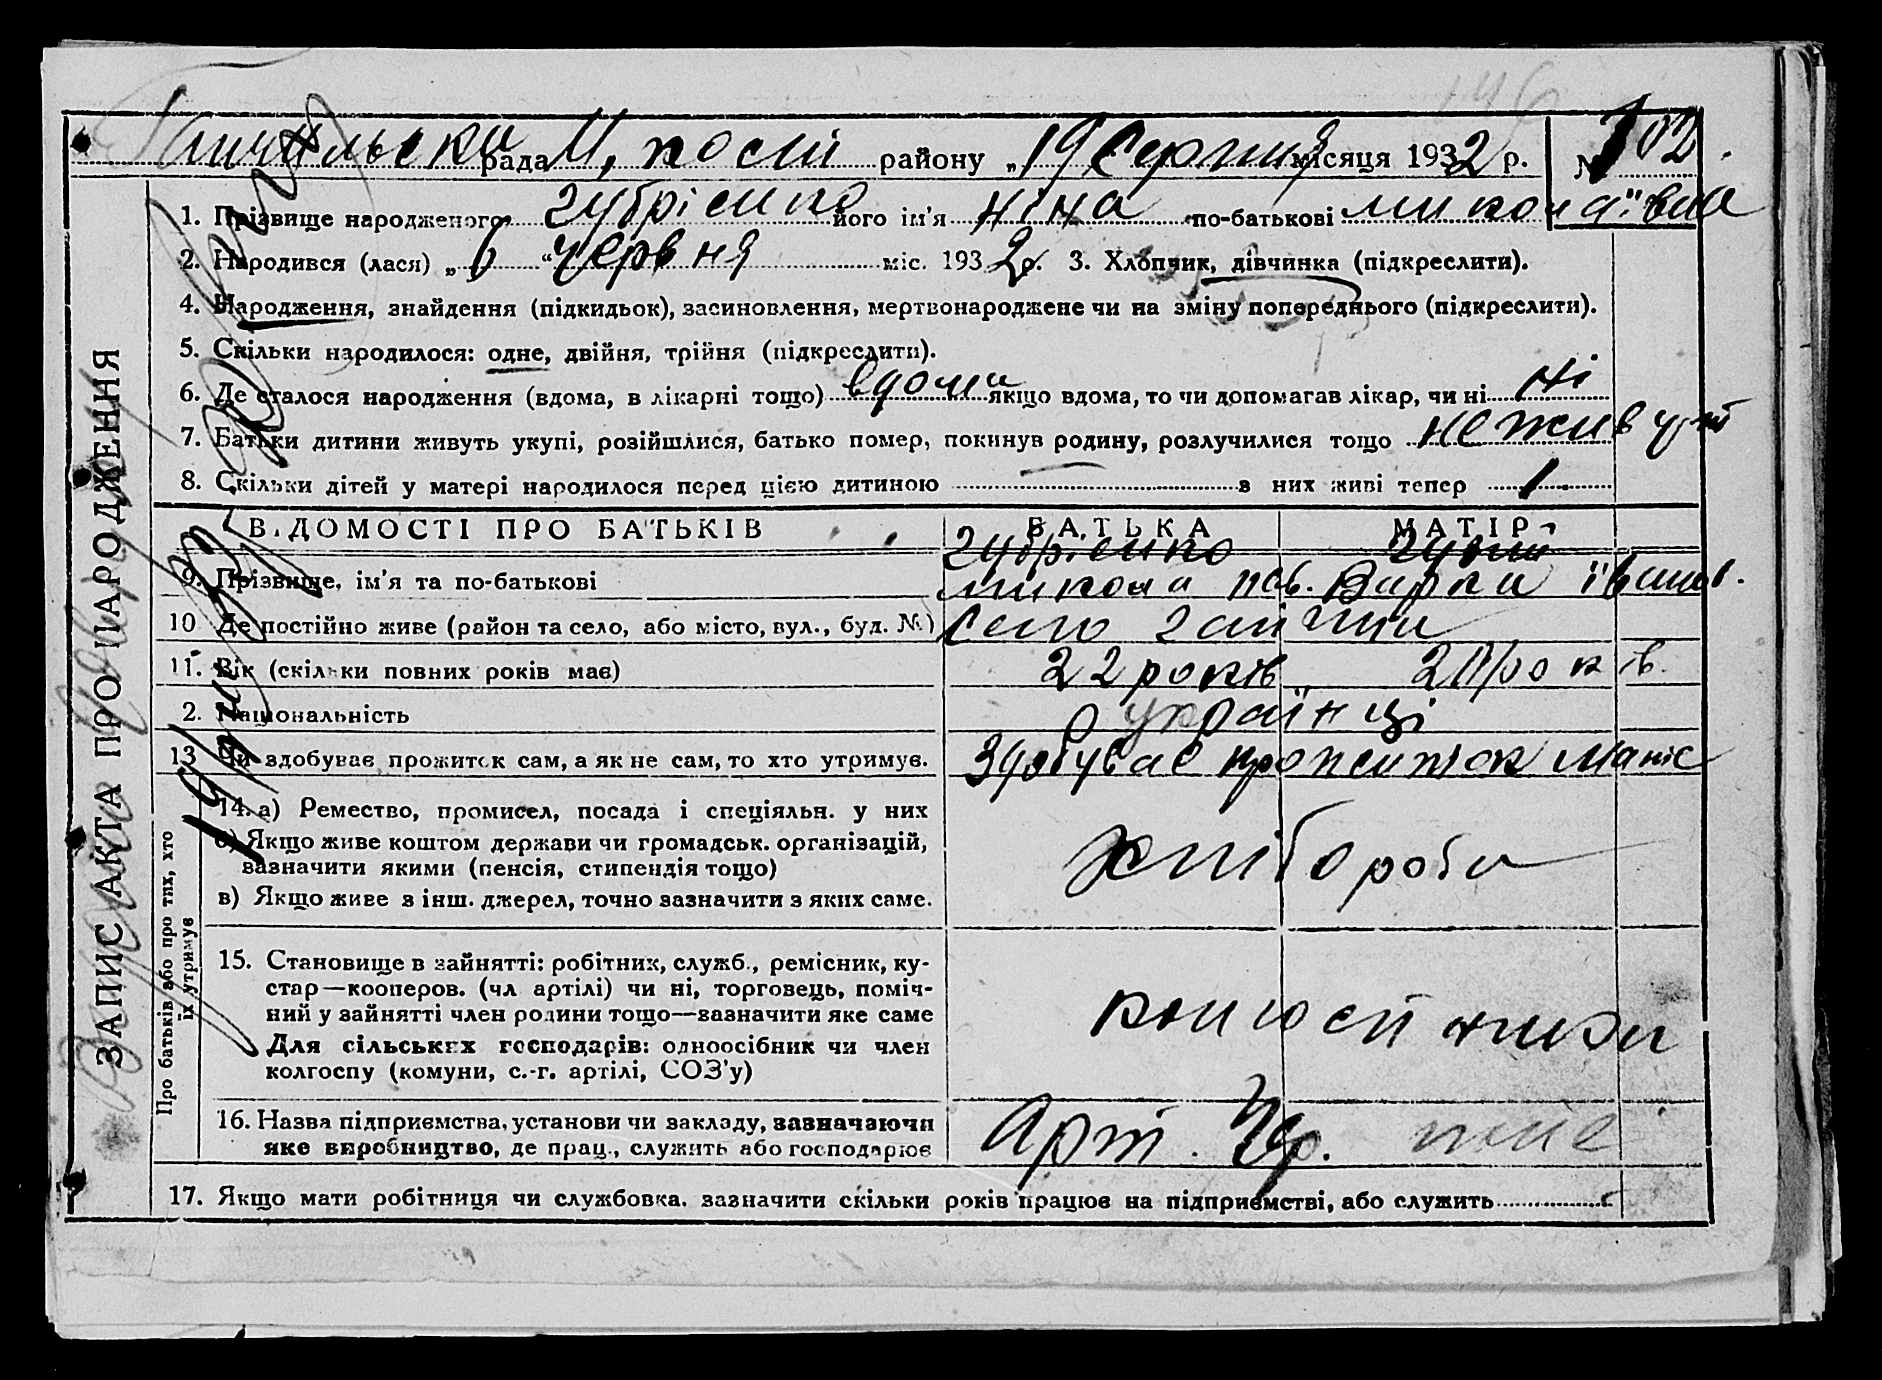 рада М. космі району „19 Серпня місяця 1932 р. № 102
1. Прізвище народженого Зубрієнко його ім'я Ніна по-батькові Миколаївна
2. Народився (лася) „6 “ Червня міс. 1932 р. 3. Хлопчик, дівчинка (підкреслити).
4. Народження, знайдення (підкидьок), засиновлення, мертвонароджене чи на зміну попереднього (підкреслити).
5. Скільки народилося: одне, двійня, трійня (підкреслити).
6. Де сталося народження (вдома, в лікарні тощо) вдома якщо вдома, то чи допомагав лікар, чи ні ні
7. Батьки дитини живуть укупі, розійшлися, батько помер, покинув родину, розлучилися тощо не живуть
8. Скільки дітей у матері народилося перед цією дитиною в них живі тепер 1
ЗАПИС АКТА ПРО НАРОДЖЕННЯ
ВІДОМОСТІ ПРО БАТЬКІВ БАТЬКА МАТІР
Зубрієнко
9. Прізвище, ім'я та по-батькові Микола Пав. Варка Іванов.
10 Де постійно живе (район та село, або місто, вул., буд. №) Село
11. Вік (скільки повних років має) 22 років 21 років.
2. Національність українці
13 Чи здобуває прожиток сам, а як не сам, то хто утримує. Здобуває прожиток
Про батьків або про тих, хто їх утримує
14. а) Ремество, промисел, посада і спеціяльн. у них
б) Якщо живе коштом держави чи громадськ. організацій,
зазначити якими (пенсія, стипендія тощо) хлібороби
в) Якщо живе з інш. джерел, точно зазначити з яких саме.
15. Становище в зайнятті: робітник, служб., ремісник, ку-
стар—кооперов. (чл артілі) чи ні, торговець, поміч-
ний у зайнятті член родини тощо—зазначити яке саме
Для сільських господарів: одноосібник чи член
колгоспу (комуни, с.-г. артілі, СОЗ'у)
16. Назва підприємства, установи чи закладу, зазначаючи
яке виробництво, де прац., служить або господарює Арт.
17. Якщо мати робітниця чи службовка. зазначити скільки років працює на підприємстві, або служить